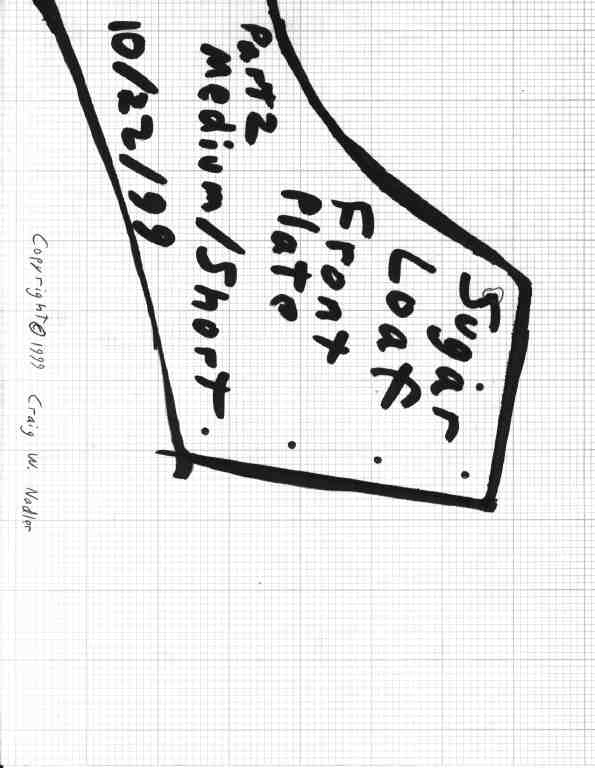 Sugar
Loaf
Front
Plate
Part 2
Medium/Short
10/22/99
Copyright © 1999 Craig W. Nadler